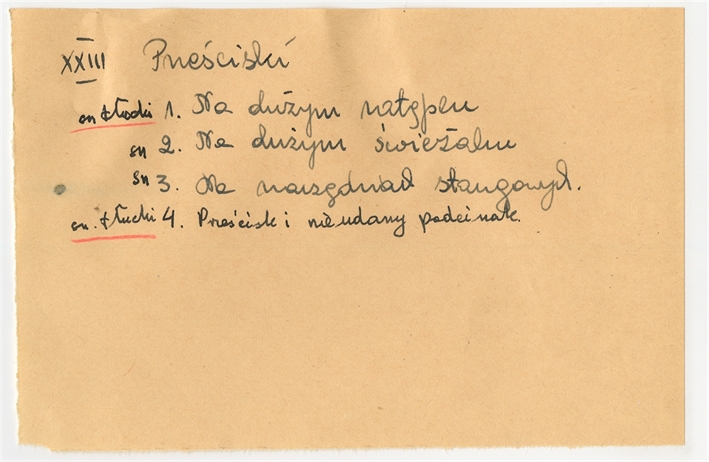 XXIII Prześciski
sn + tłucki 1. Na dużym natępcu
sn 2. Na dużym świeżaku
sn 3. Na narzędziach sztancowych.
sn. tłucki 4. Prześciski nieudany podcinak.